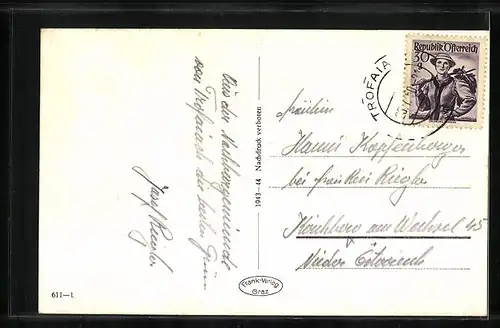 Aus der Nachbargemeinde
von Trofaiach die besten Grüße
Josef
1943-44 Nachdruck verboten
611-1
Frank-Verlag
Graz
TROFAIA
Republik Österreich
30
Fräulein
Hanni Kopfenberger
bei Riegler
Kirchberg am Wechsel 45
Nieder Österreich